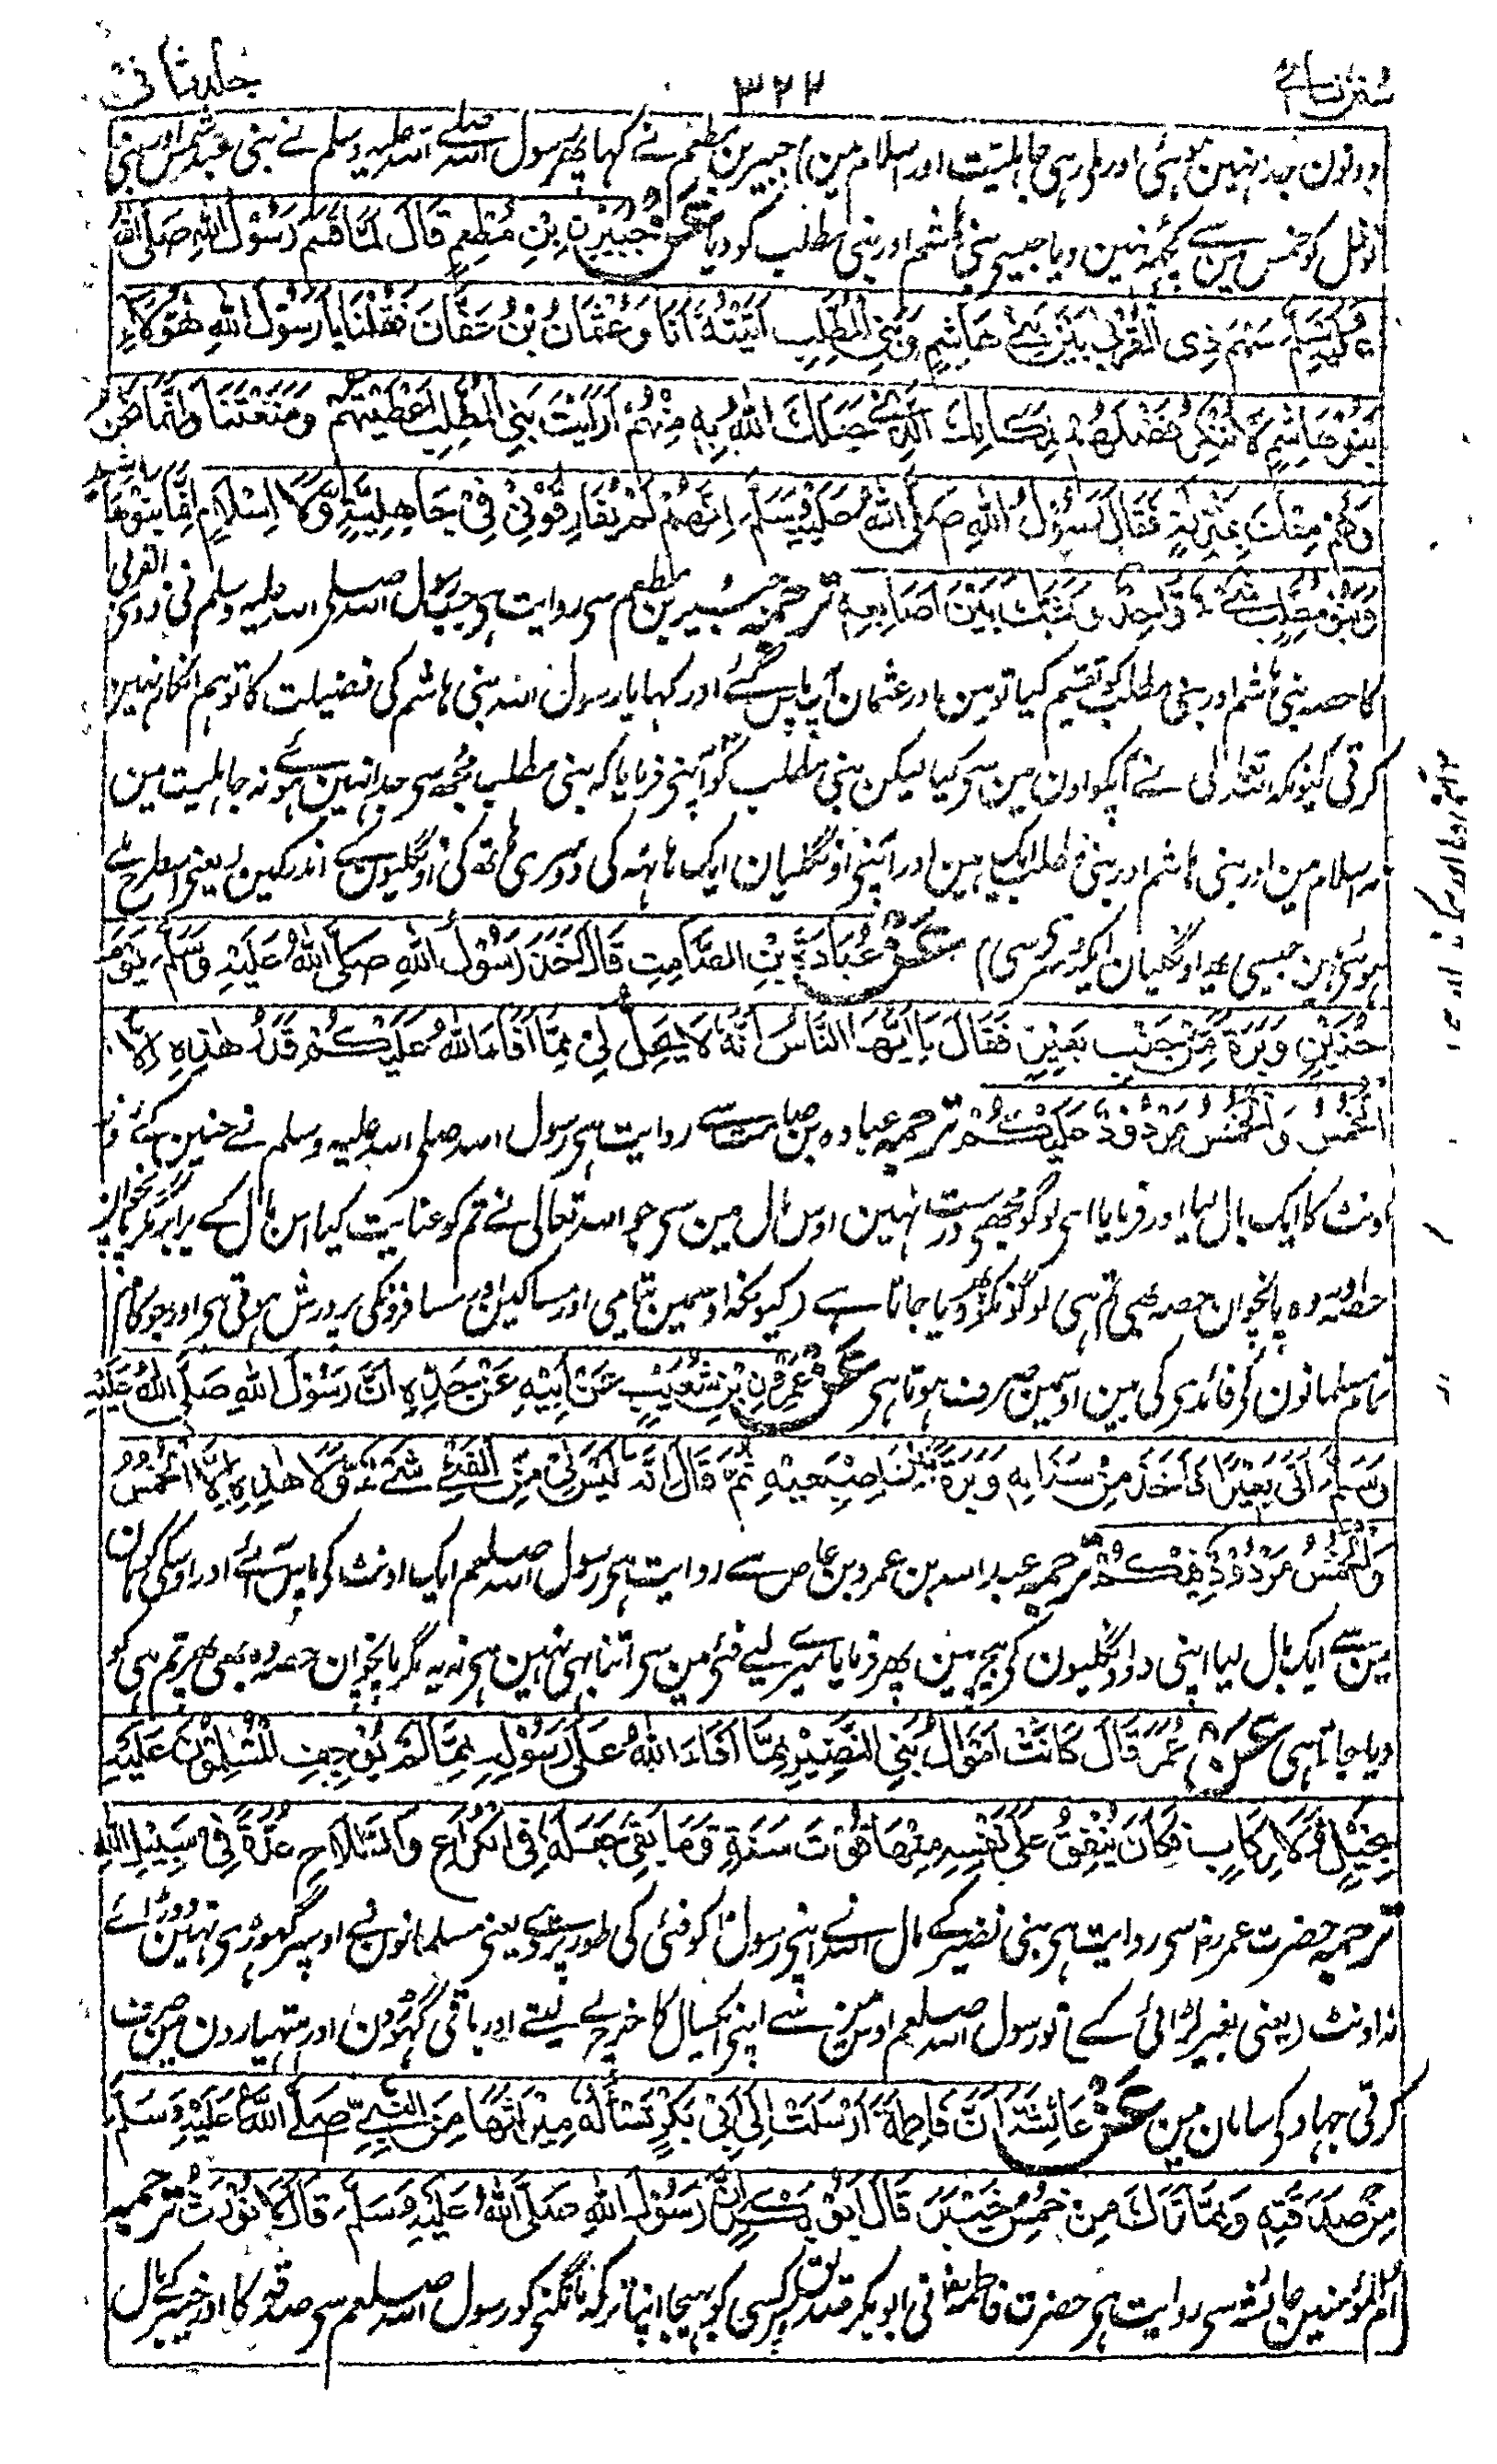 سنن نسائے
۳۲۲
جلد ثانی
دونون جدا نہین ہوئی اور ملی رہی جاہلیت اور اسلام مین) جبیر بن مطعم نے کہا پھر رسول اللہ صلے اللہ علیہ وسلم نے بنی عبد شمس اور بنی
نوفل کو خمس مین سے کچھہ نہین دیا جیسی بنی ہاشم اور بنی مطلب کو دیا عَنْ جُبَيْرِ بْنِ مُطْعِمٍ قَالَ لَمَّا قَسَمَ رَسُوْلُ اللّٰهِ صَلَّى اللّٰهُ
عَلَيْهِ وَسَلَّمَ سَهْمَ ذِى الْقُرْبٰى بَيْنَ بَنِيْ هَاشِمٍ وَبَنِي الْمُطَّلِبِ اَتَيْتُهٗ اَنَا وَعُثْمَانُ بْنُ عَفَّانَ فَقُلْنَا يَا رَسُوْلَ اللّٰهِ هٰؤُلَاءِ
بَنُوْ هَاشِمٍ لَا نُنْكِرُ فَضْلَهُمْ لِمَكَانِكَ الَّذِيْ جَعَلَكَ اللّٰهُ بِهٖ مِنْهُمْ اَرَاَيْتَ بَنِي الْمُطَّلِبِ اَعْطَيْتَهُمْ وَمَنَعْتَنَا وَاِنَّمَا نَحْنُ
وَهُمْ مِنْكَ بِمَنْزِلَةٍ فَقَالَ رَسُوْلُ اللّٰهِ صَلَّى اللّٰهُ عَلَيْهِ وَسَلَّمَ اِنَّهُمْ لَمْ يُفَارِقُوْنِيْ فِيْ جَاهِلِيَّةٍ وَّلَا اِسْلَامٍ اِنَّمَا بَنُوْ هَاشِمٍ
وَبَنُوْ مُطَّلِبٍ شَيْءٌ وَّاحِدٌ وَشَبَّكَ بَيْنَ اَصَابِعِهٖ ترجمہ جبیر بن مطعم سی روایت ہی جب رسول اللہ صلی اللہ علیہ وسلم نی ذوی القربی
کا حصہ بنی ہاشم اور بنی مطلب کو تقسیم کیا تو مین اور عثمان آپ پاس گئے اور کہا یا رسول اللہ بنی ہاشم کی فضیلت کا تو ہم انکار نہین
کرتی کیونکہ اللہ تعالی نے آپکو اون مین سی کیا لیکن بنی مطلب کو آپنی فرمایا کہ بنی مطلب مجھہ سی جدا نہین ہوئے نہ جاہلیت مین
نہ اسلام مین اور بنی ہاشم اور بنی مطلب ایک ہین اور اپنی اونگلیان ایک ہاتہہ کی دوسری ہاتھ کی اونگلیون کے اندر کین (یعنی اسطرح ملے
ہوئی ہین جیسی یہ اونگلیان ایک دوسری سی) عَنْ عُبَادَةَ بْنِ الصَّامِتِ قَالَ اَخَذَ رَسُوْلُ اللّٰهِ صَلَّى اللّٰهُ عَلَيْهِ وَسَلَّمَ يَوْمَ
حُنَيْنٍ وَبَرَةً مِّنْ جَنْبِ بَعِيْرٍ فَقَالَ يَا اَيُّهَا النَّاسُ اِنَّهٗ لَا يَحِلُّ لِيْ مِمَّا اَفَاءَ اللّٰهُ عَلَيْكُمْ قَدْرُ هٰذِهٖ اِلَّا
الْخُمُسُ وَالْخُمُسُ مَرْدُوْدٌ عَلَيْكُمْ ترجمہ عبادہ بن صامت سے روایت ہی رسول اللہ صلی اللہ علیہ وسلم نے حنین کے دن
اونٹ کا ایک بال لیا اور فرمایا ای لوگو مجھی درست نہین اوس مال مین سی جو اللہ تعالی نے تم کو عنایت کیا اس بال کے برابر مگر پانچوان
حصہ اور وہ پانچوان حصہ بھی تم ہی لوگونکو پھر دیا جاتا ہے (کیونکہ اوسمین یتامی اور مساکین اور مسافرونکی پرورش ہوتی ہی اور جو کام
تمام مسلمانون کی فائدی کی ہین اوسمین صرف ہوتا ہی عَنْ عَمْرِو بْنِ شُعَيْبٍ عَنْ اَبِيْهِ عَنْ جَدِّهٖ اَنَّ رَسُوْلَ اللّٰهِ صَلَّى اللّٰهُ عَلَيْهِ
وَسَلَّمَ اَتٰى بَعِيْرًا فَاَخَذَ مِنْ سَنَامِهٖ وَبَرَةً بَيْنَ اِصْبَعَيْهِ ثُمَّ قَالَ اِنَّهٗ لَيْسَ لِيْ مِنَ الْفَيْءِ شَيْءٌ وَّلَا هٰذِهٖ اِلَّا الْخُمُسُ
وَالْخُمُسُ مَرْدُوْدٌ فِيْكُمْ ترجمہ عبد اللہ بن عمرو بن عاص سے روایت ہی رسول اللہ صلعم ایک اونٹ کی پاس آئے اور اوسکی کوہان
مین سے ایک بال لیا اپنی دو اونگلیون کی بیچ مین پھر فرمایا میرے لیے فئی مین سی اتنا بھی نہین ہی نہ یہ مگر پانچوان حصہ وہ بھی پھر تم ہی کو
دیا جاتا ہی عَنْ عُمَرَ قَالَ كَانَتْ اَمْوَالُ بَنِي النَّضِيْرِ مِمَّا اَفَاءَ اللّٰهُ عَلٰى رَسُوْلِهٖ مِمَّا لَمْ يُوْجِفِ الْمُسْلِمُوْنَ عَلَيْهِ
بِخَيْلٍ وَّلَا رِكَابٍ فَكَانَ يُنْفِقُ عَلٰى نَفْسِهٖ مِنْهَا قُوْتَ سَنَةٍ وَّمَا بَقِيَ جَعَلَهٗ فِي الْكُرَاعِ وَالسِّلَاحِ عُدَّةً فِيْ سَبِيْلِ اللّٰهِ
ترجمہ حضرت عمر رض سی روایت ہی بنی نضیر کے مال اللہ نے اپنی رسول کو فئی کی طور پر دئے یعنی مسلمانون نے اوسپر گہوڑی نہین دوڑائے
نہ اونٹ (یعنی بغیر لڑائی کے) تو رسول اللہ صلعم اوس مین سے اپنی ایکسال کا خرچ لیتے اور باقی گہوڑون اور ہتہیارون مین صرف
کرتی جہاد کی سامان مین عَنْ عَائِشَةَ اَنَّ فَاطِمَةَ اَرْسَلَتْ اِلٰى اَبِيْ بَكْرٍ تَسْأَلُهٗ مِيْرَاثَهَا مِنَ النَّبِيِّ صَلَّى اللّٰهُ عَلَيْهِ وَسَلَّمَ
مِنْ صَدَقَتِهٖ وَمِمَّا تَرَكَ مِنْ خُمُسِ خَيْبَرَ قَالَ اَبُوْ بَكْرٍ اِنَّ رَسُوْلَ اللّٰهِ صَلَّى اللّٰهُ عَلَيْهِ وَسَلَّمَ قَالَ لَا نُوْرَثُ ترجمہ
ام المؤمنین عائشہ سی روایت ہی حضرت فاطمہ نی ابو بکر صدیق پاس کسی کو بہیجا اپنا ترکہ مانگنی کو رسول اللہ صلعم سی صدقہ کا اور خیبر کے مال